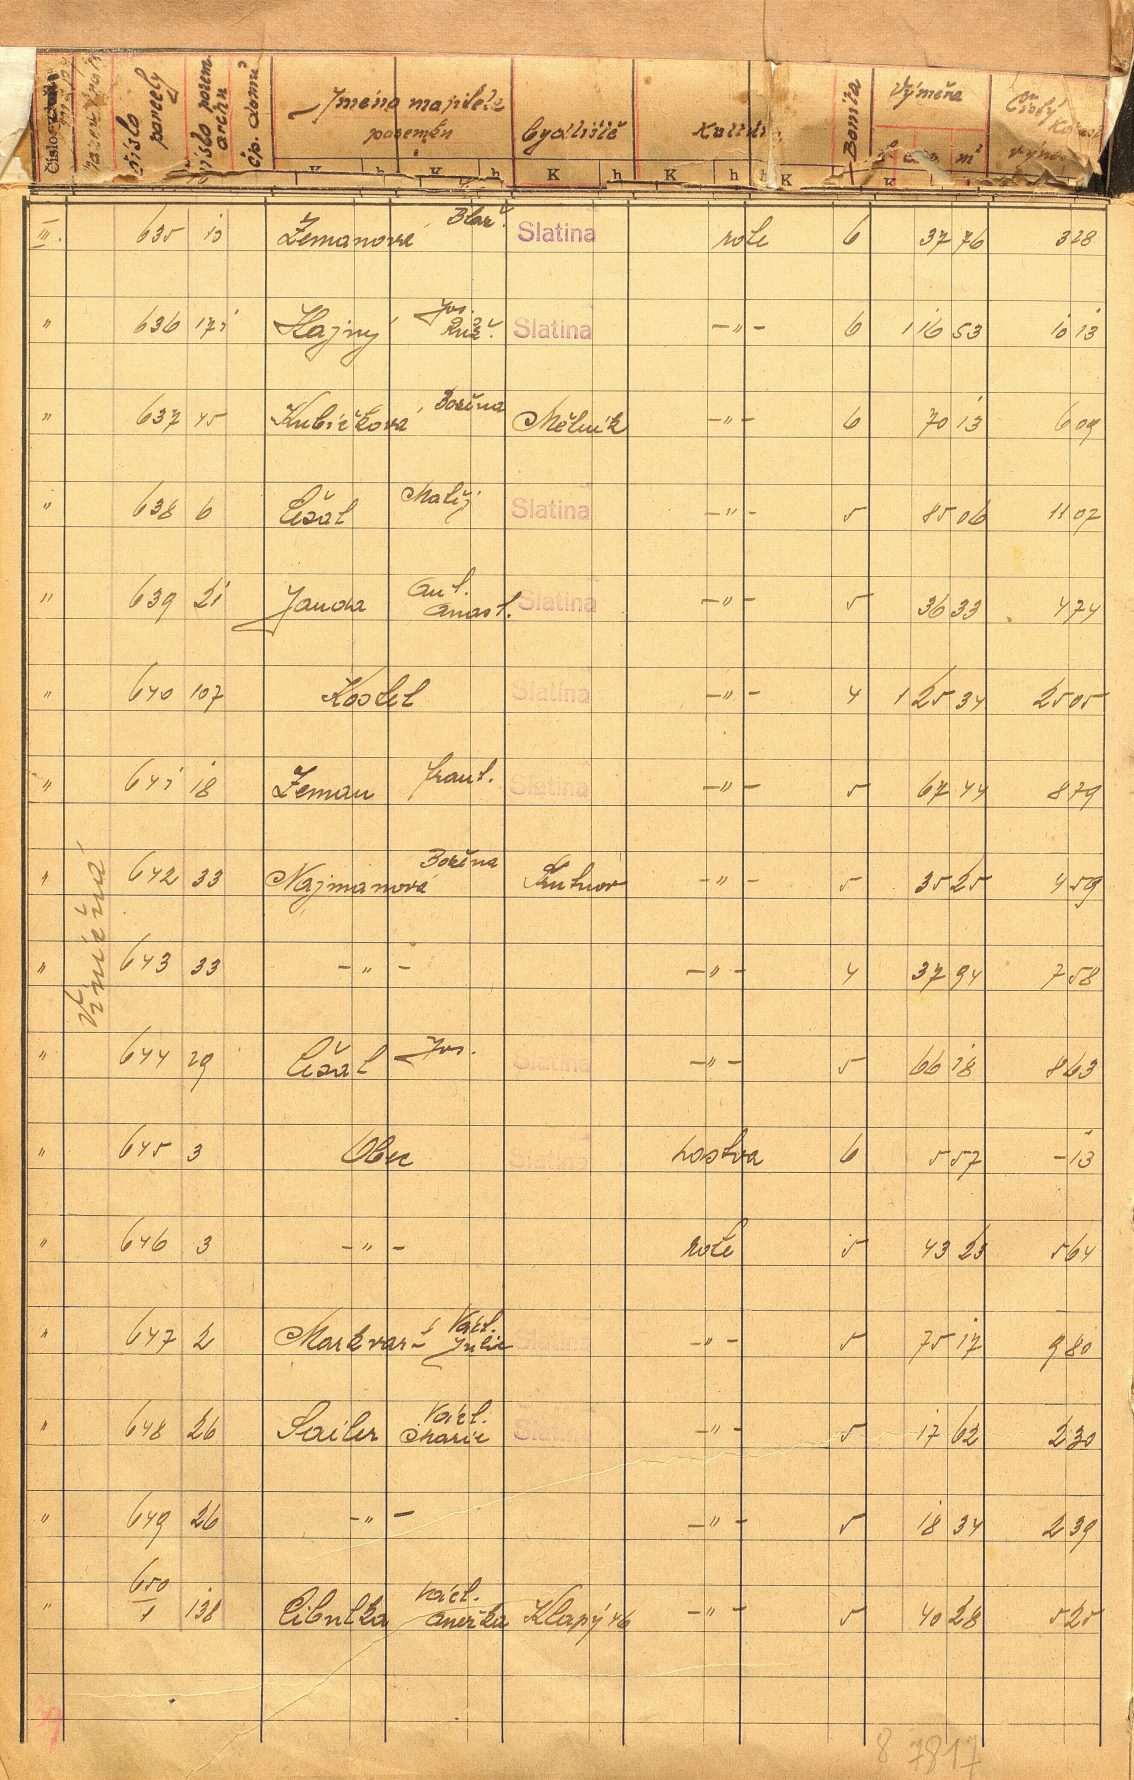 číslo parcely
číslo pozem. archu
čp. domů
Jméno majitele pozemku
bydliště
Bonita
Výměra
m²
Čistý
K h K h K h K
III. 635 Zemanová Slatina role 6 37 76 3 28
" 636 Hajný Jos. Růž. Slatina -"- 6 1 16 53 10 13
" 637 45 Kubíčková Božena Mělník -"- 6 70 13 6 09
" 638 6 Čežal Matěj Slatina -"- 5 85 06 11 07
" 639 21 Janda Ant. Anast. Slatina -"- 5 36 33 4 74
" 640 107 Kostel Slatina -"- 4 1 25 34 25 05
" 641 18 Zeman Frant. Slatina -"- 5 67 44 8 79
" 642 33 Najmanová Božena -"- 5 35 25 4 59
" 643 33 -"- -"- 4 37 94 7 58
" 644 29 Čežal Jos. Slatina -"- 5 66 18 8 63
" 645 3 Obec Slatina 6 5 57 -13
" 646 3 -"- role 5 43 23 5 64
" 647 2 Markvart Václ. Julie Slatina -"- 5 75 17 9 80
" 648 26 Sailer Václ. Marie Slatina -"- 5 17 62 2 30
" 649 26 -"- -"- 5 18 34 2 39
" 650/1 138 Cibulka Václ. Anežka Klapý 46 -"- 5 40 28 5 25
8 7817